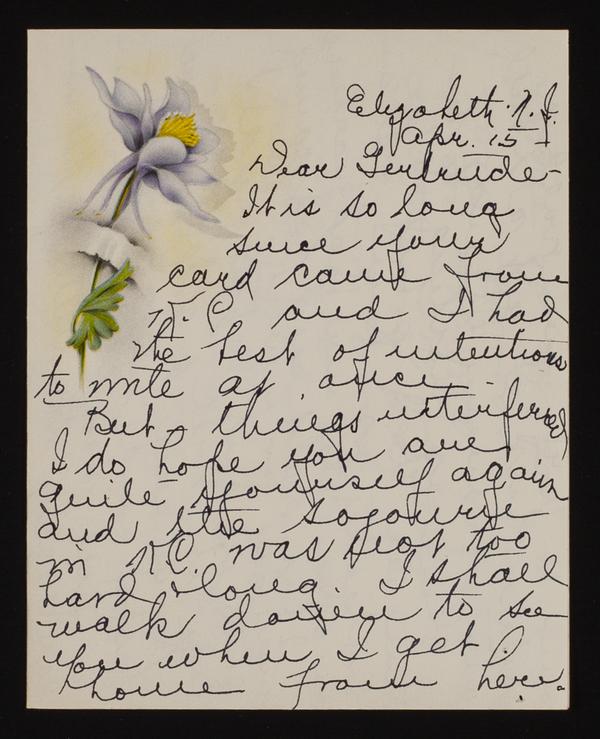 Elizabeth. N.J.
Apr. 15
Dear Gertrude-
It is so long
since your
card came from
N.C. and I had
the best of intentions
to write at once.
But - things interferred
I do hope you are
quite yourself again
and the sojourn
in N.C. was not too
hard & long. I shall
walk down to see
you when I get
home from here.